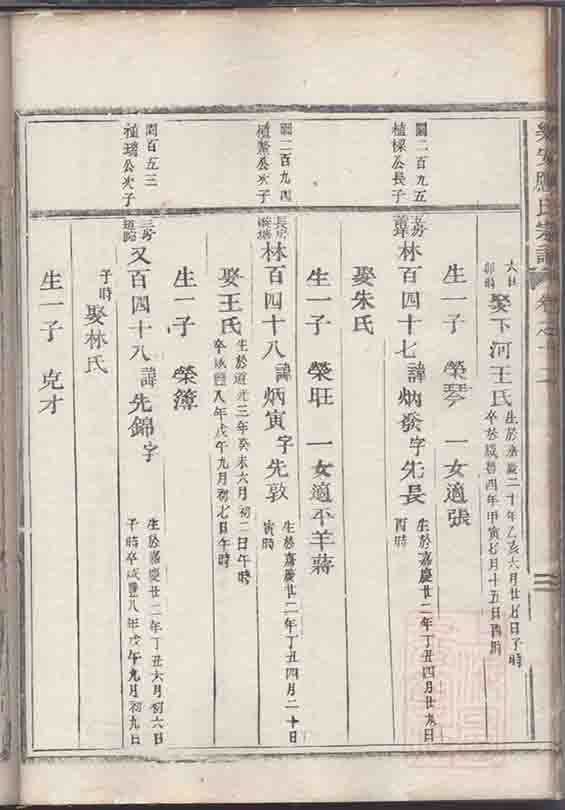 氏宗譜 卷之十二
六日
卯時
娶下河王氏
生於嘉慶二十年乙亥六月廿七日子時
卒於咸豐四年甲寅七月十五日酉時
生一子 榮琴 一女適張
關二百九五
植樑公長子
林百四十七 諱炳發 字先長
生於嘉慶廿二年丁丑四月廿九日
酉時
娶朱氏
生一子 榮旺 一女適平羊蔣
關二百九四
公次子
長房
林百四十八 諱炳寅 字先敦
生於嘉慶廿二年丁丑四月二十日
寅時
娶王氏
生於道光三年癸未六月初二日午時
卒咸豐八年戊午九月初七日午時
生一子 榮簿
關百五三
植瑞公次子
三房
又百四十八 諱先錦 字
生於嘉慶廿二年丁丑六月初六日
子時卒咸豐八年戊午九月初九日
子時
娶林氏
生一子 克才